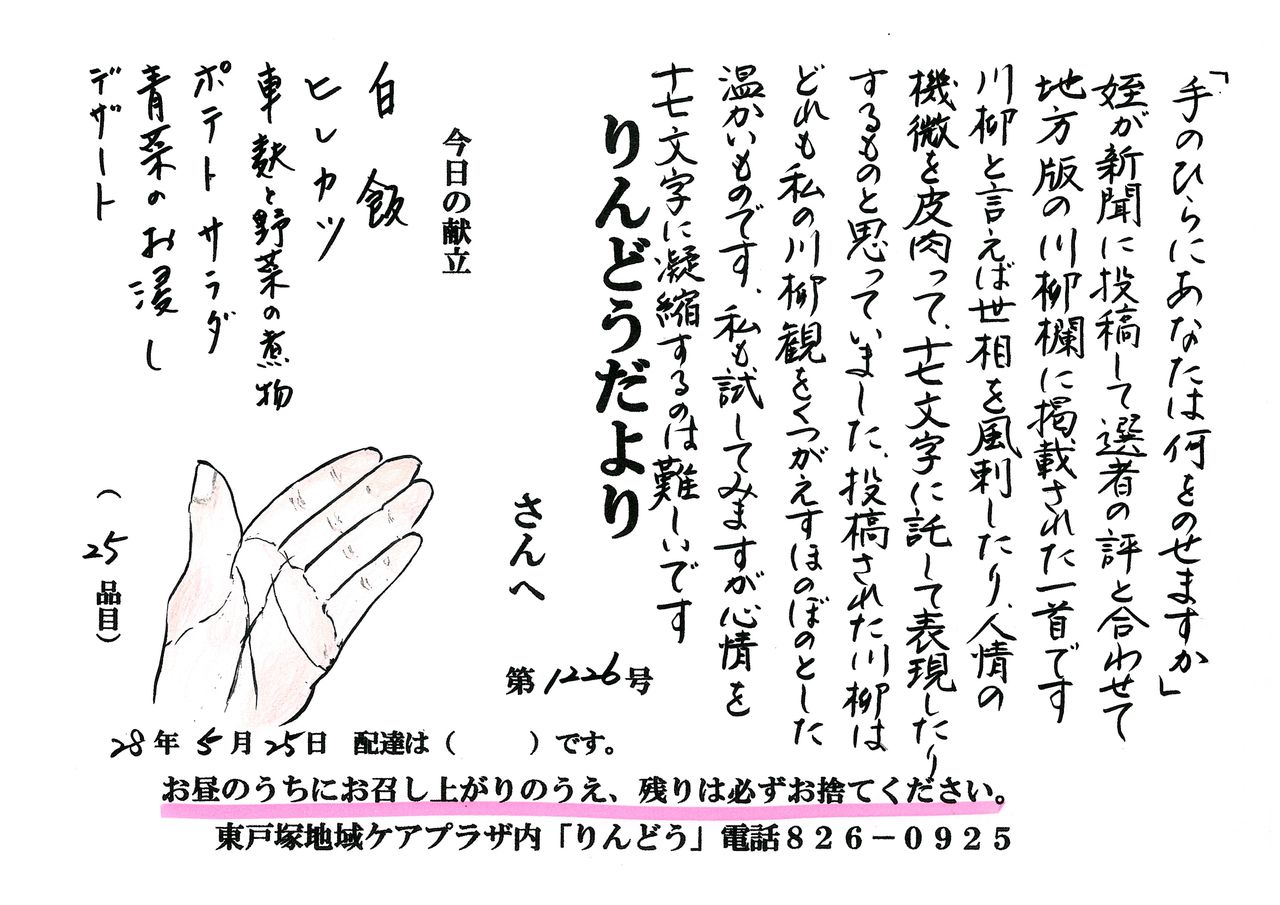 「手のひらにあなたは何をのせますか」
姪が新聞に投稿して選者の評と合わせて
地方版の川柳欄に掲載された一首です
川柳と言えば世相を風刺したり、人情の
機微を皮肉って、十七文字に託して表現したり
するものと思っていました、投稿された川柳は
どれも私の川柳観をくつがえすほのぼのとした
温かいものです、私も試してみますが心情を
十七文字に凝縮するのは難しいです
りんどうだより
さんへ
第1226号
今日の献立
白飯
ヒレカツ
車麩と野菜の煮物
ポテトサラダ
青菜のお浸し
デザート
(25品目)
28年5月25日 配達は( )です。
お昼のうちにお召し上がりのうえ、残りは必ずお捨てください。
東戸塚地域ケアプラザ内「りんどう」電話826-0925